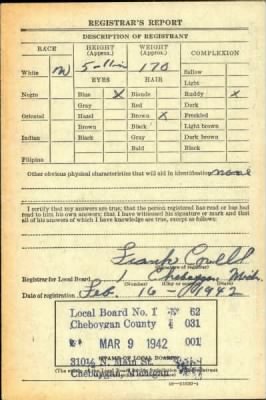 REGISTRAR'S REPORT
DESCRIPTION OF REGISTRANT
RACE HEIGHT (Approx.) WEIGHT (Approx.) COMPLEXION
White W 5-11 in 170 Sallow
EYES HAIR Light
Negro Blue X Blonde Ruddy X
Gray Red Dark
Oriental Hazel Brown X Freckled
Brown Black Light brown
Indian Black Gray Dark brown
Bald Black
Filipino
Other obvious physical characteristics that will aid in identification none
I certify that my answers are true; that the person registered has read or has had
read to him his own answers; that I have witnessed his signature or mark and that
all of his answers of which I have knowledge are true, except as follows:
Frank
(Signature of registrar)
Registrar for Local Board 1 Cheboygan Mich.
(Number) (City or county) (State)
Date of registration Feb. 16 - 1942
Local Board No. 1 62
Cheboygan County 031
MAR 9 1942 001
310½ N. Main St.
(STAMP OF LOCAL BOARD)
Cheboygan, Michigan